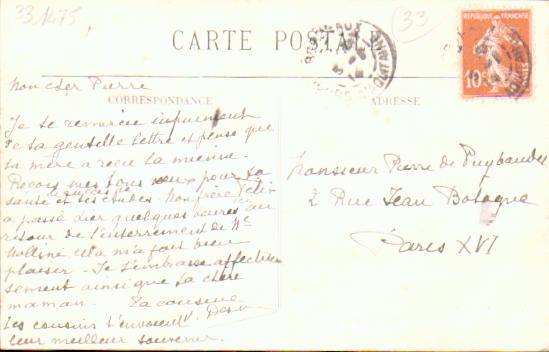 33 1475
33
CARTE POSTALE
BORDEAUX
RÉPUBLIQUE FRANÇAISE
10c
CORRESPONDANCE
ADRESSE
Mon cher Pierre
Je te remercie infiniment
de ta gentille lettre et pense que
ta mère a reçu la mienne.
Reçois mes bons vœux pour ta
santé et tes études. Mon frère Félix
a passé hier quelques heures ici au
retour de l'enterrement de Me
cela m'a fait bien
plaisir. Je t'embrasse affectueu
sement ainsi que ta chère
maman. Ta cousine
Les cousins t'envoient
leur meilleur souvenir
Monsieur Pierre de Puybaudet
2 Rue Jean Bologne
Paris XVI